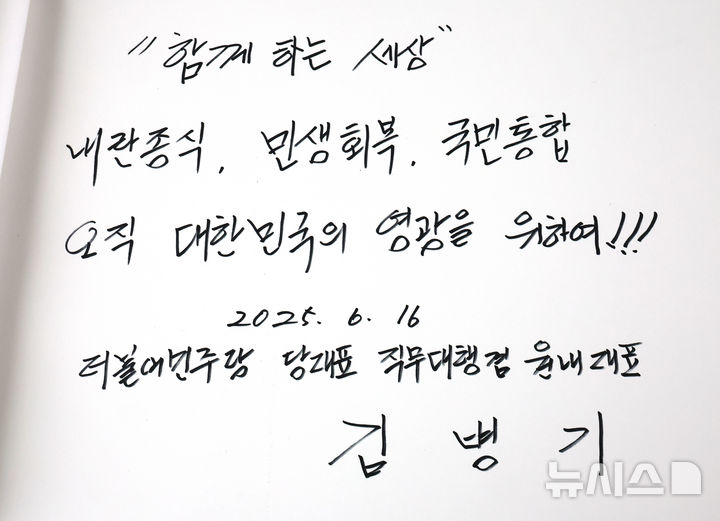 "함께 하는 세상"
내란종식, 민생회복, 국민통합
오직 대한민국의 영광을 위하여!!!
2025. 6. 16
더불어민주당 당대표 직무대행겸 원내대표
김병기
뉴시스